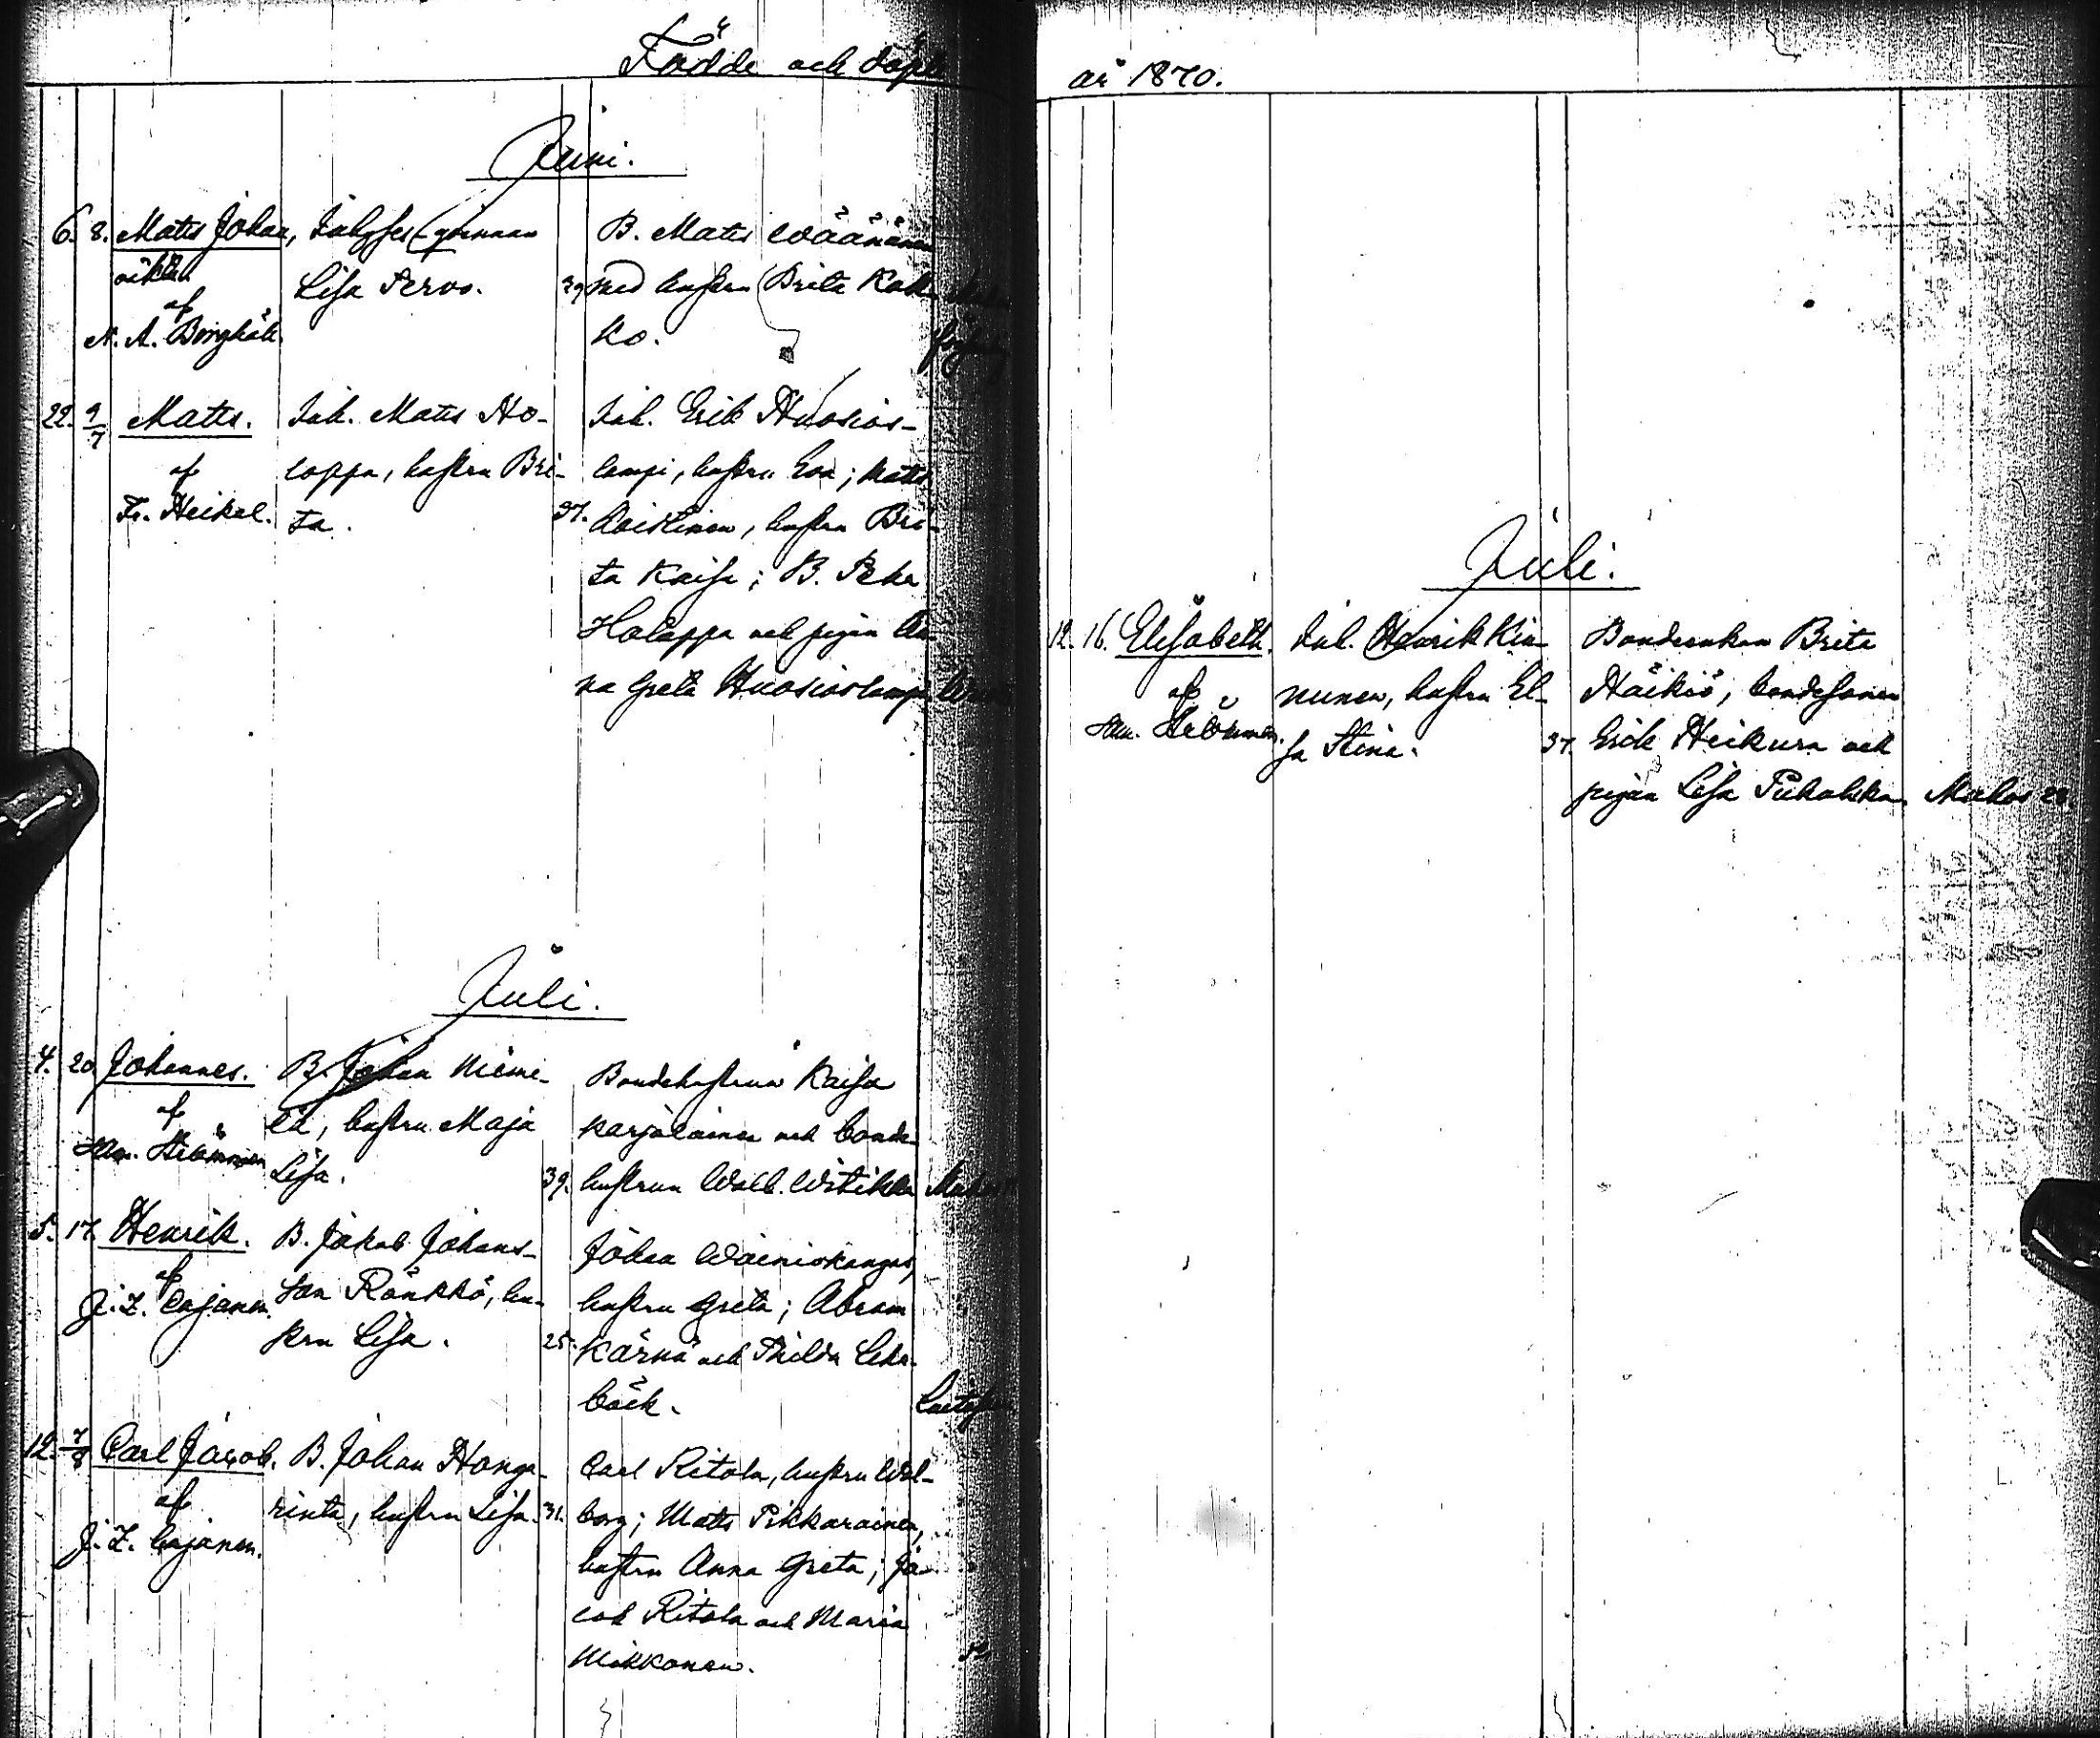 Födde och döpte
år 1870.
Juni.
6. 8. Matts Johan,
oäkta
af
N. A. Borgbäck.
Lisa Tervo.
B. Matts Wäänänen
39 med hustru Brita Kak-
ko.
22. 9/7 Matts.
af
Fr. Heikel.
Inh. Matts Ho-
loppa, hustru Bri-
ta.
Inh. Erik Huosios-
lampi, hustru Eva; Matts
37. Koistinen, hustru Bri-
ta Kaisa; B. Pehr
Holappa och pigan An-
na Greta Huosioslampi
Juli.
4. 20. Johannes.
af
Hm. Helömaa
B. Johan Nieme-
lä, hustru Maja
Lisa.
Bondehustrun Kaisa
Karjalainen och bonde-
39. hustrun Walb. Witikka
5. 17. Henrik.
af
J. Z. Cajanen.
B. Jakob Johans-
son Rönkkö, hu-
stru Lisa.
Johan Wäiniökangas,
hustru Greta; Abram
25. Kärnä och Thilda Leh-
bäck.
12. 7/8 Carl Jacob.
af
J. Z. Cajanen.
B. Johan Honga-
rinta, hustru Lisa.
Carl Ritola, hustru Wal-
31. borg; Matts Pikkarainen,
hustru Anna Greta; Ja-
cob Ritola och Maria
Mikkonen.
Juli.
12. 16. Elisabeth.
af
Inh. Henrik Kin-
nunen, hustru El-
sa Stina.
Bondeenkan Brita
Häikiö, bondesonen
37. Erik Heikura och
pigan Lisa Puhakka
Muhos